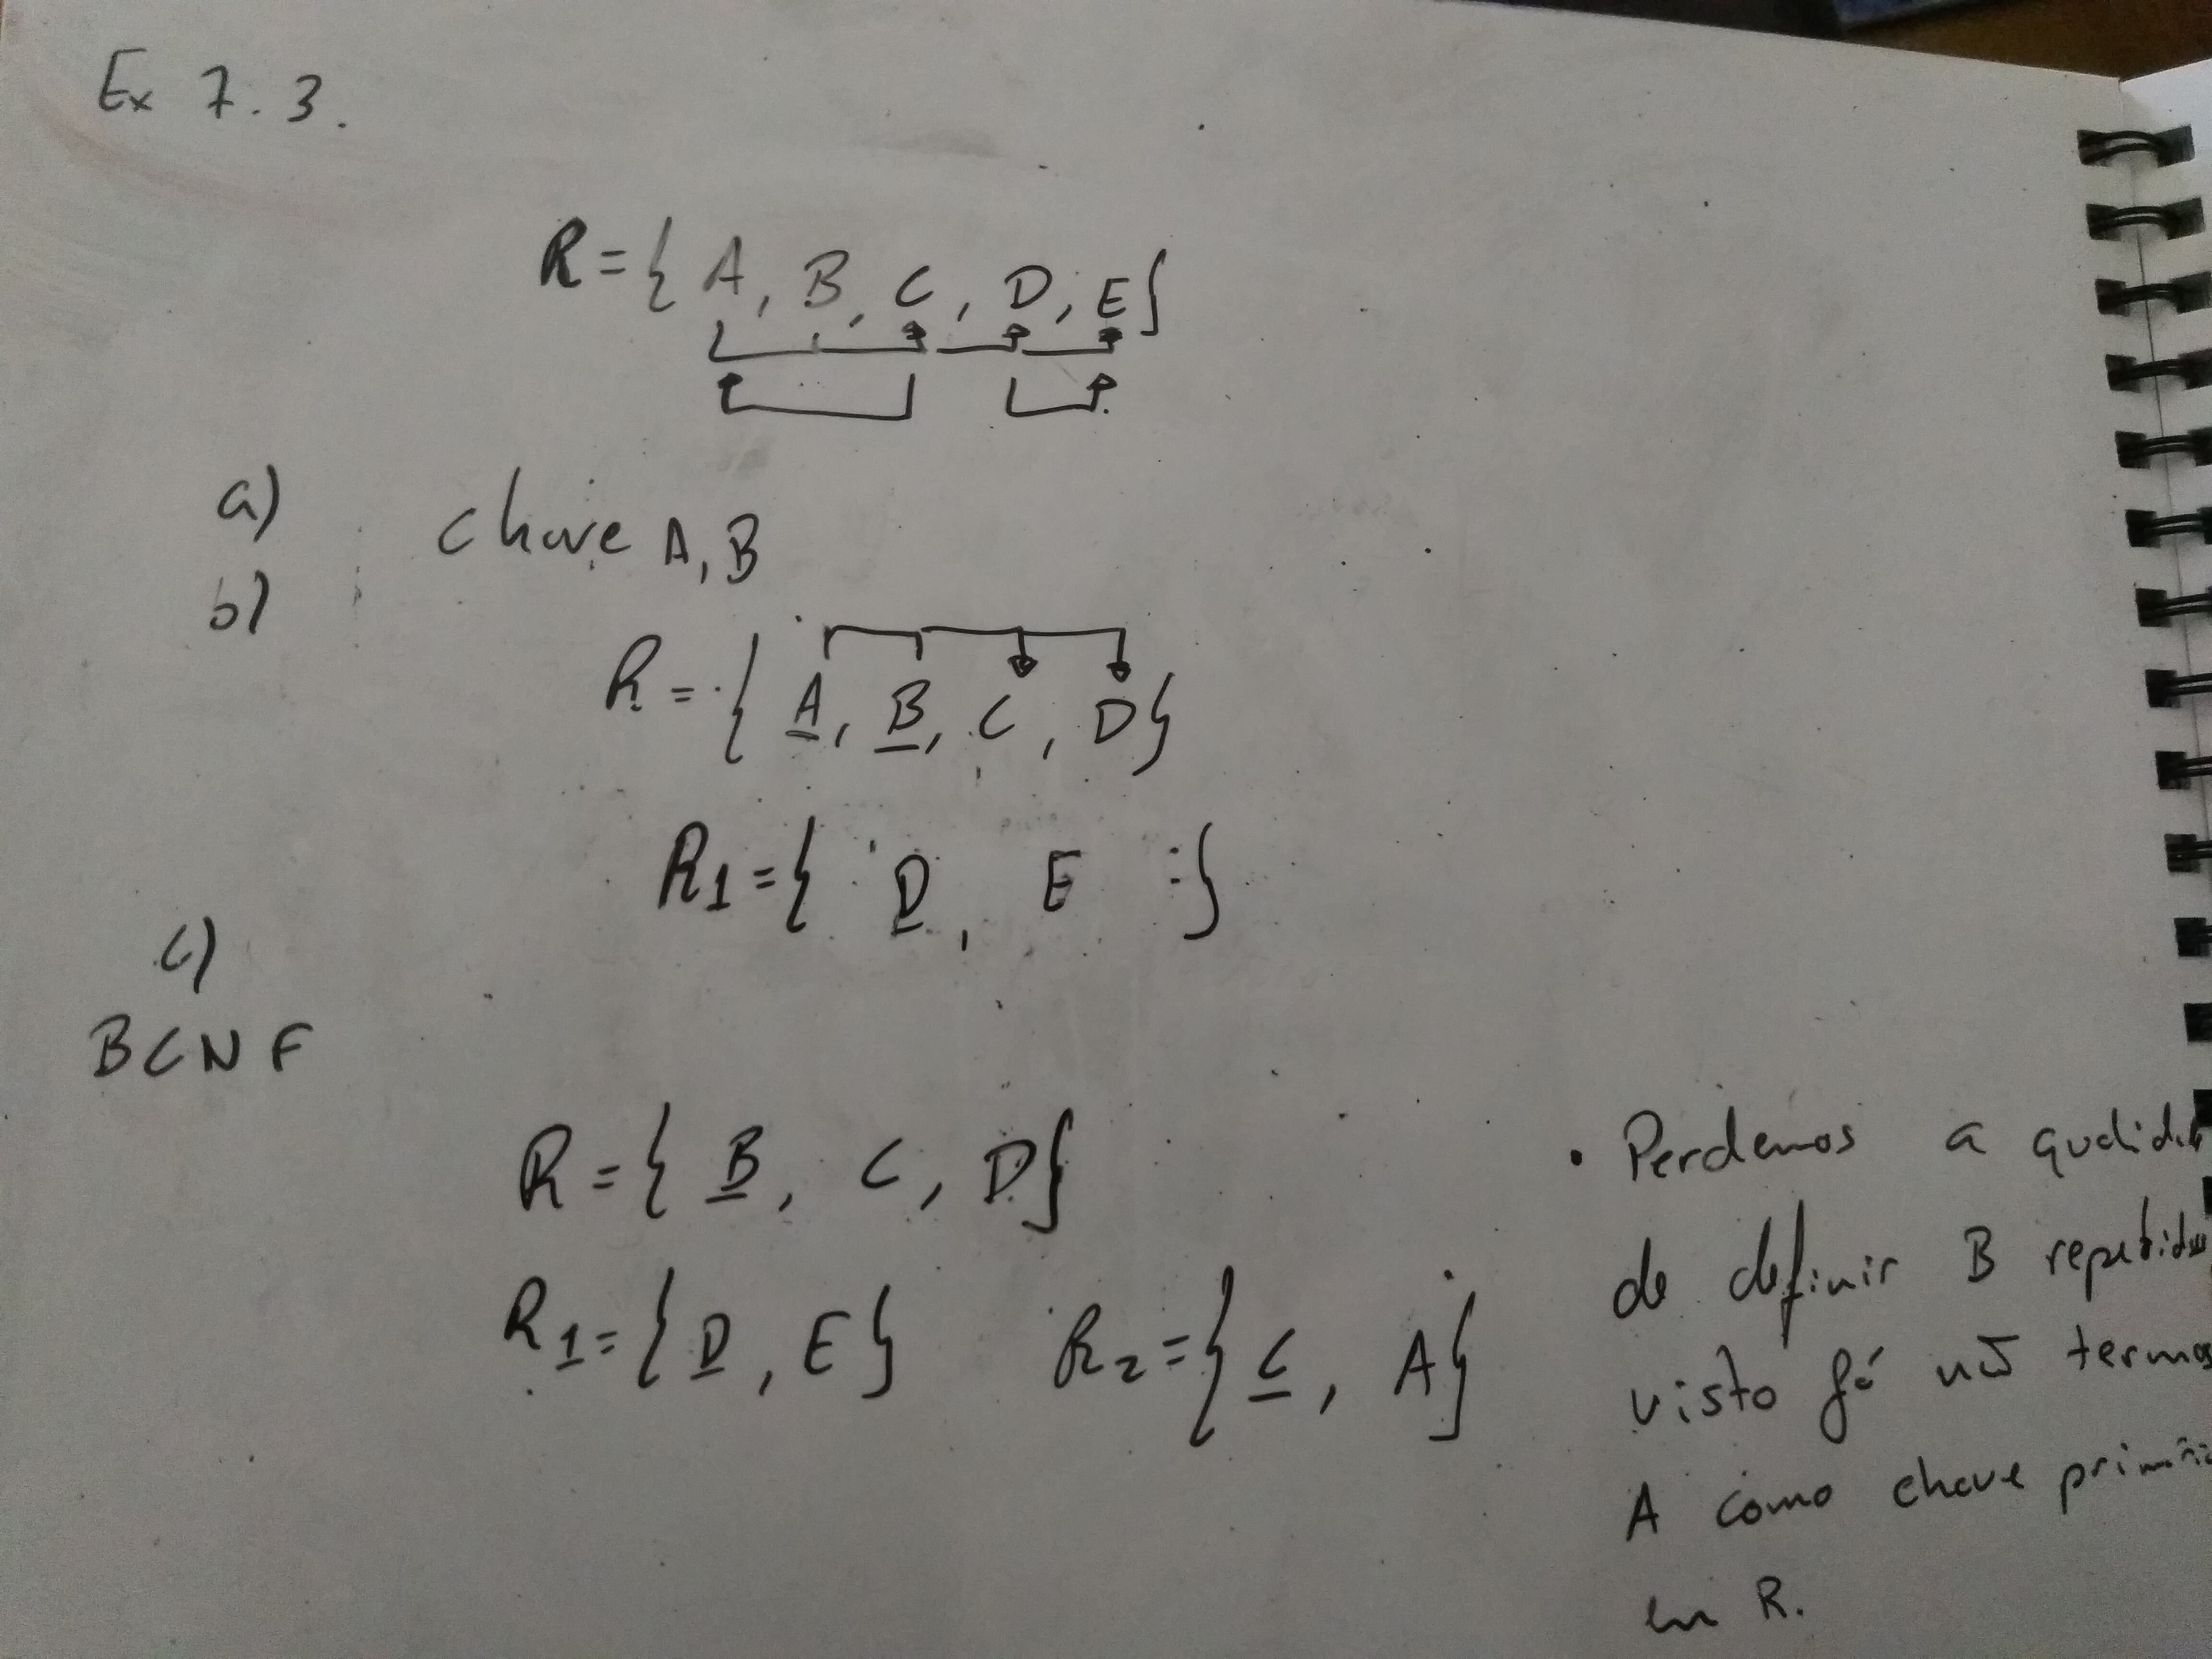 Ex 7.3.
R = { A, B, C, D, E }
a) chave A, B
b)
R = { A, B, C, D }
R1 = { D, E }
c)
BCNF
R = { B, C, D }
R1 = { D, E } R2 = { C, A }
• Perdemos a
de definir B
visto já não termos
A como chave
em R.